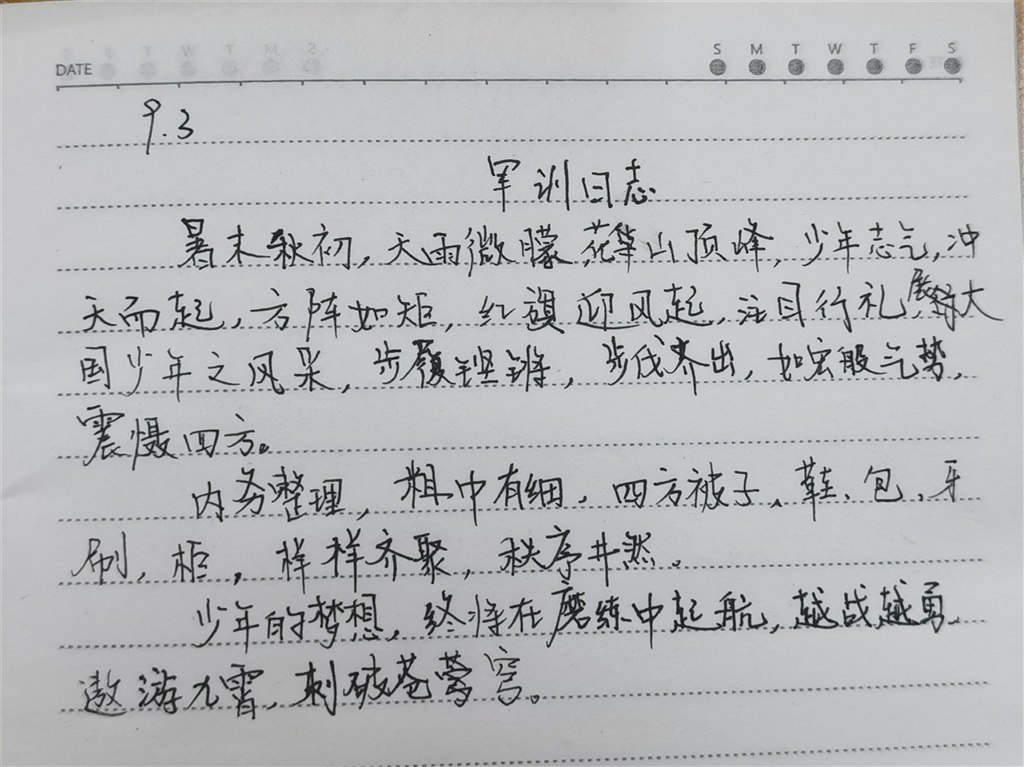 DATE
S M T W T F S
9.3
军训日志
暑末秋初,天雨微朦,花华山顶峰,少年志气,冲
天而起,方阵如矩,红旗迎风起,注目行礼,展我大
国少年之风采,步履铿锵,步伐齐出,如宏般气势,
震慑四方。
内务整理,粗中有细,四方被子,鞋、包、牙
刷,柜,样样齐聚,秩序井然。
少年的梦想,终将在磨练中起航,越战越勇
遨游九霄,刺破苍莺穹。